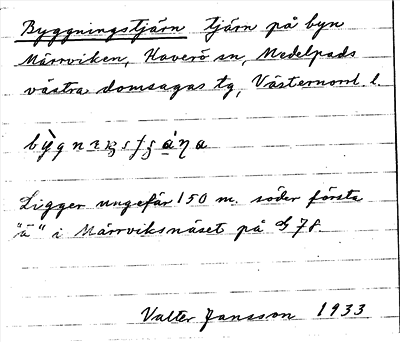 Byggningstjärn tjärn på byn
Märrviken, Haverö sn, Medelpads
västra domsagas tg, Västernorrl. l.
Ligger ungefär 150 m. söder första
"ä" i Märrviksnäset på d 78.
Valter Jansson 1933